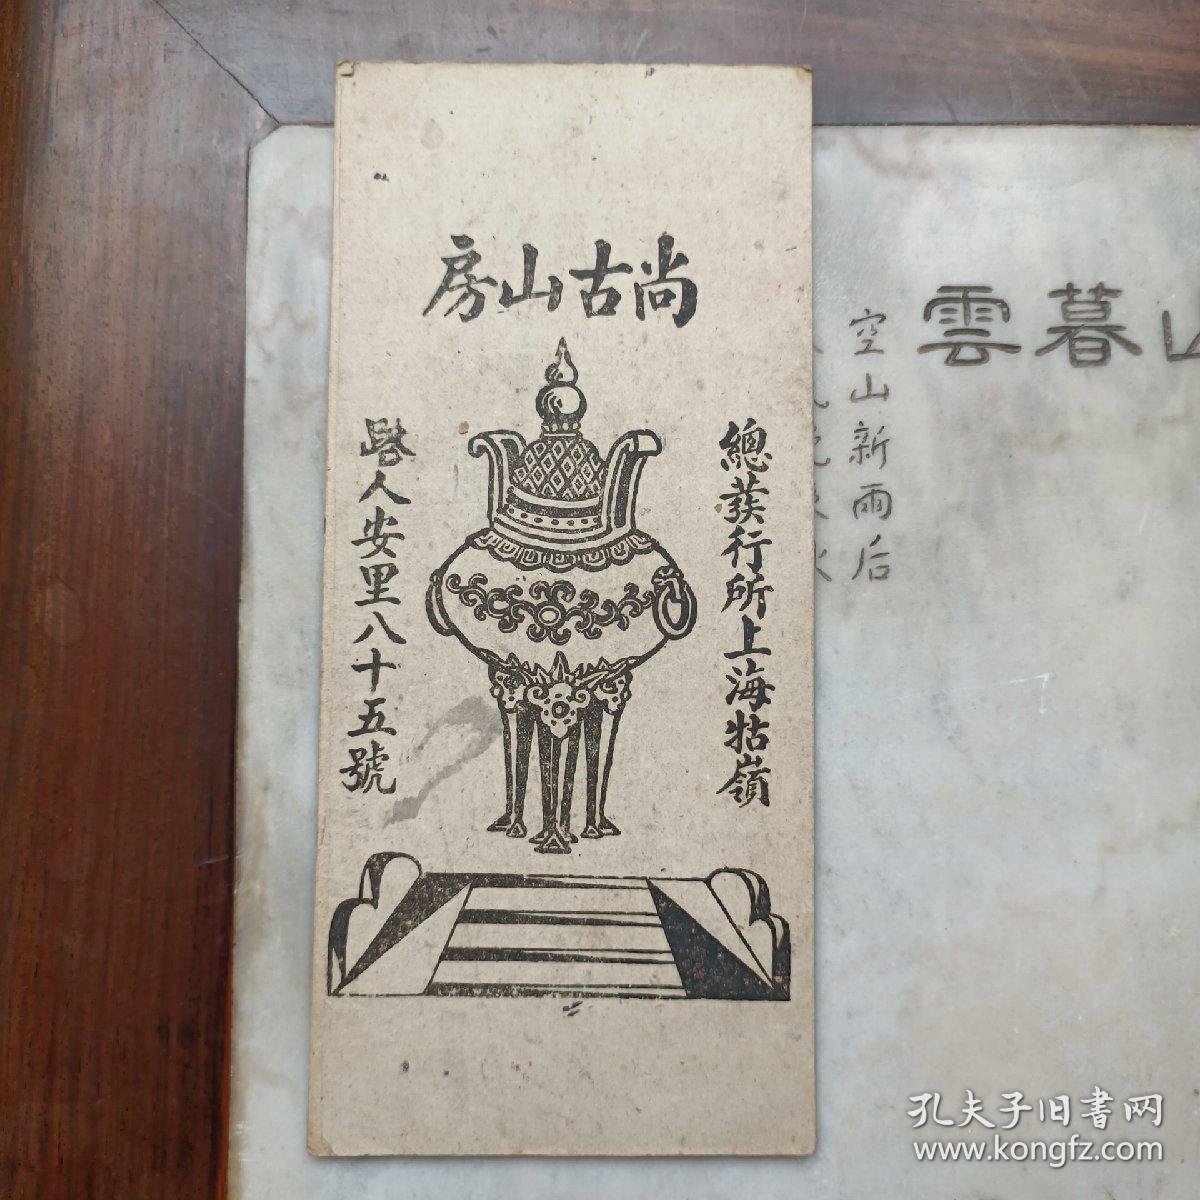 尚古山房
總發行所上海牯嶺
路人安里八十五號
山暮雲
空山新雨后
孔夫子旧書网
www.kongfz.com